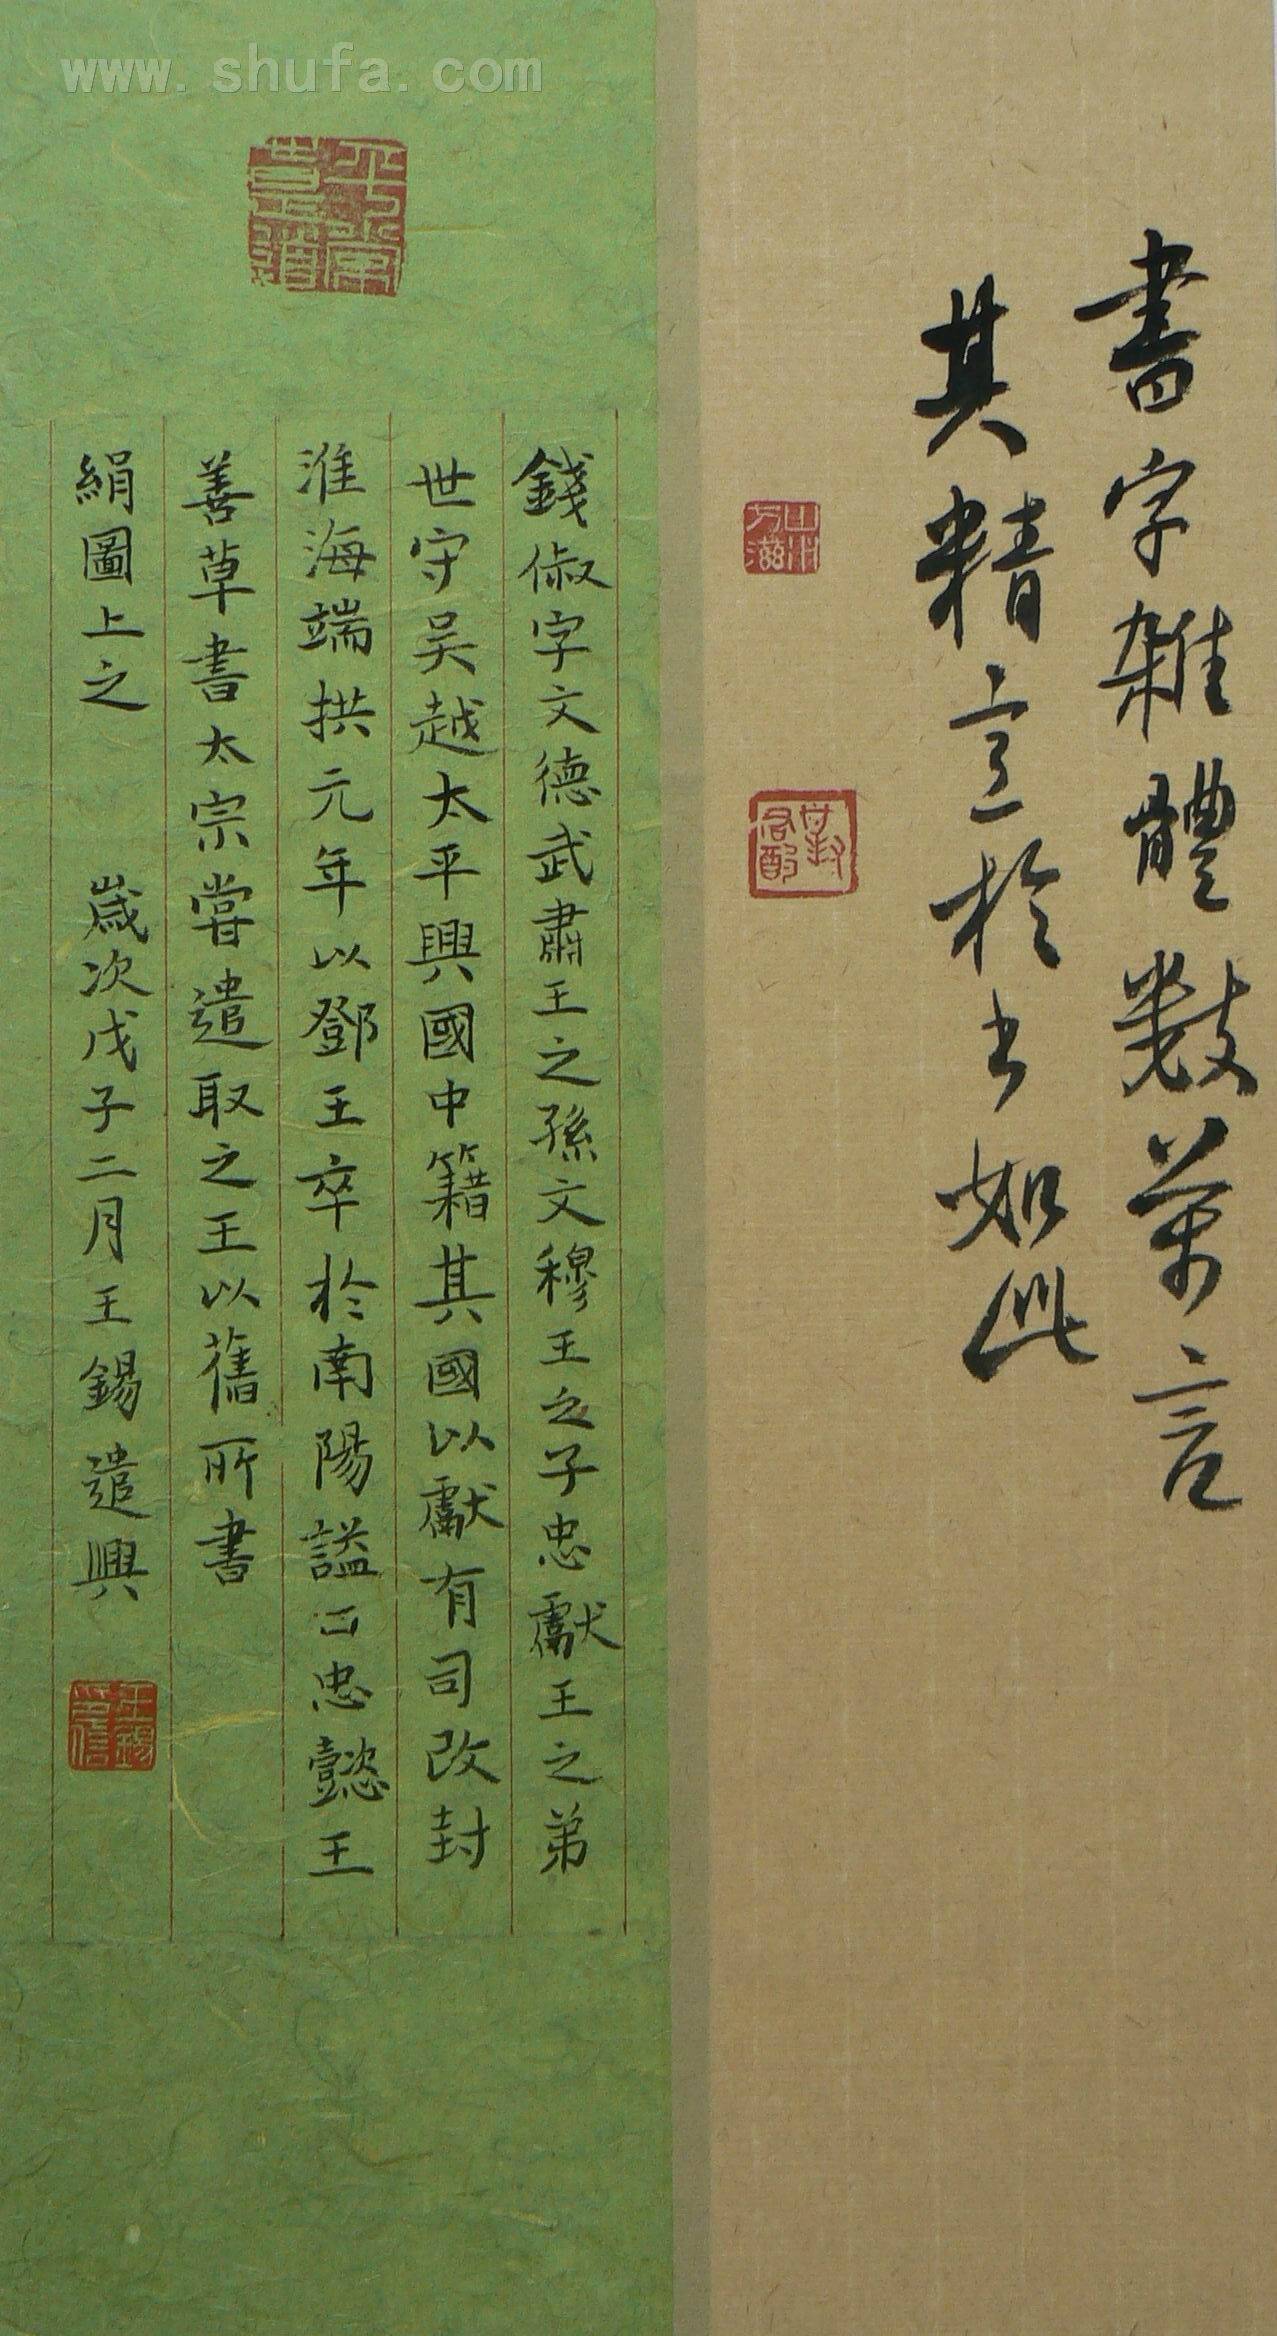 www.shufa.com
書字雜體數萬言
其精意於書如此
錢俶字文德武肅王之孫文穆王之子忠獻王之弟
世守吳越太平興國中籍其國以獻有司改封
淮海端拱元年以鄧王卒於南陽謚曰忠懿王
善草書太宗嘗遣取之王以舊所書
絹圖上之 歲次戊子二月王錫遣興
王錫